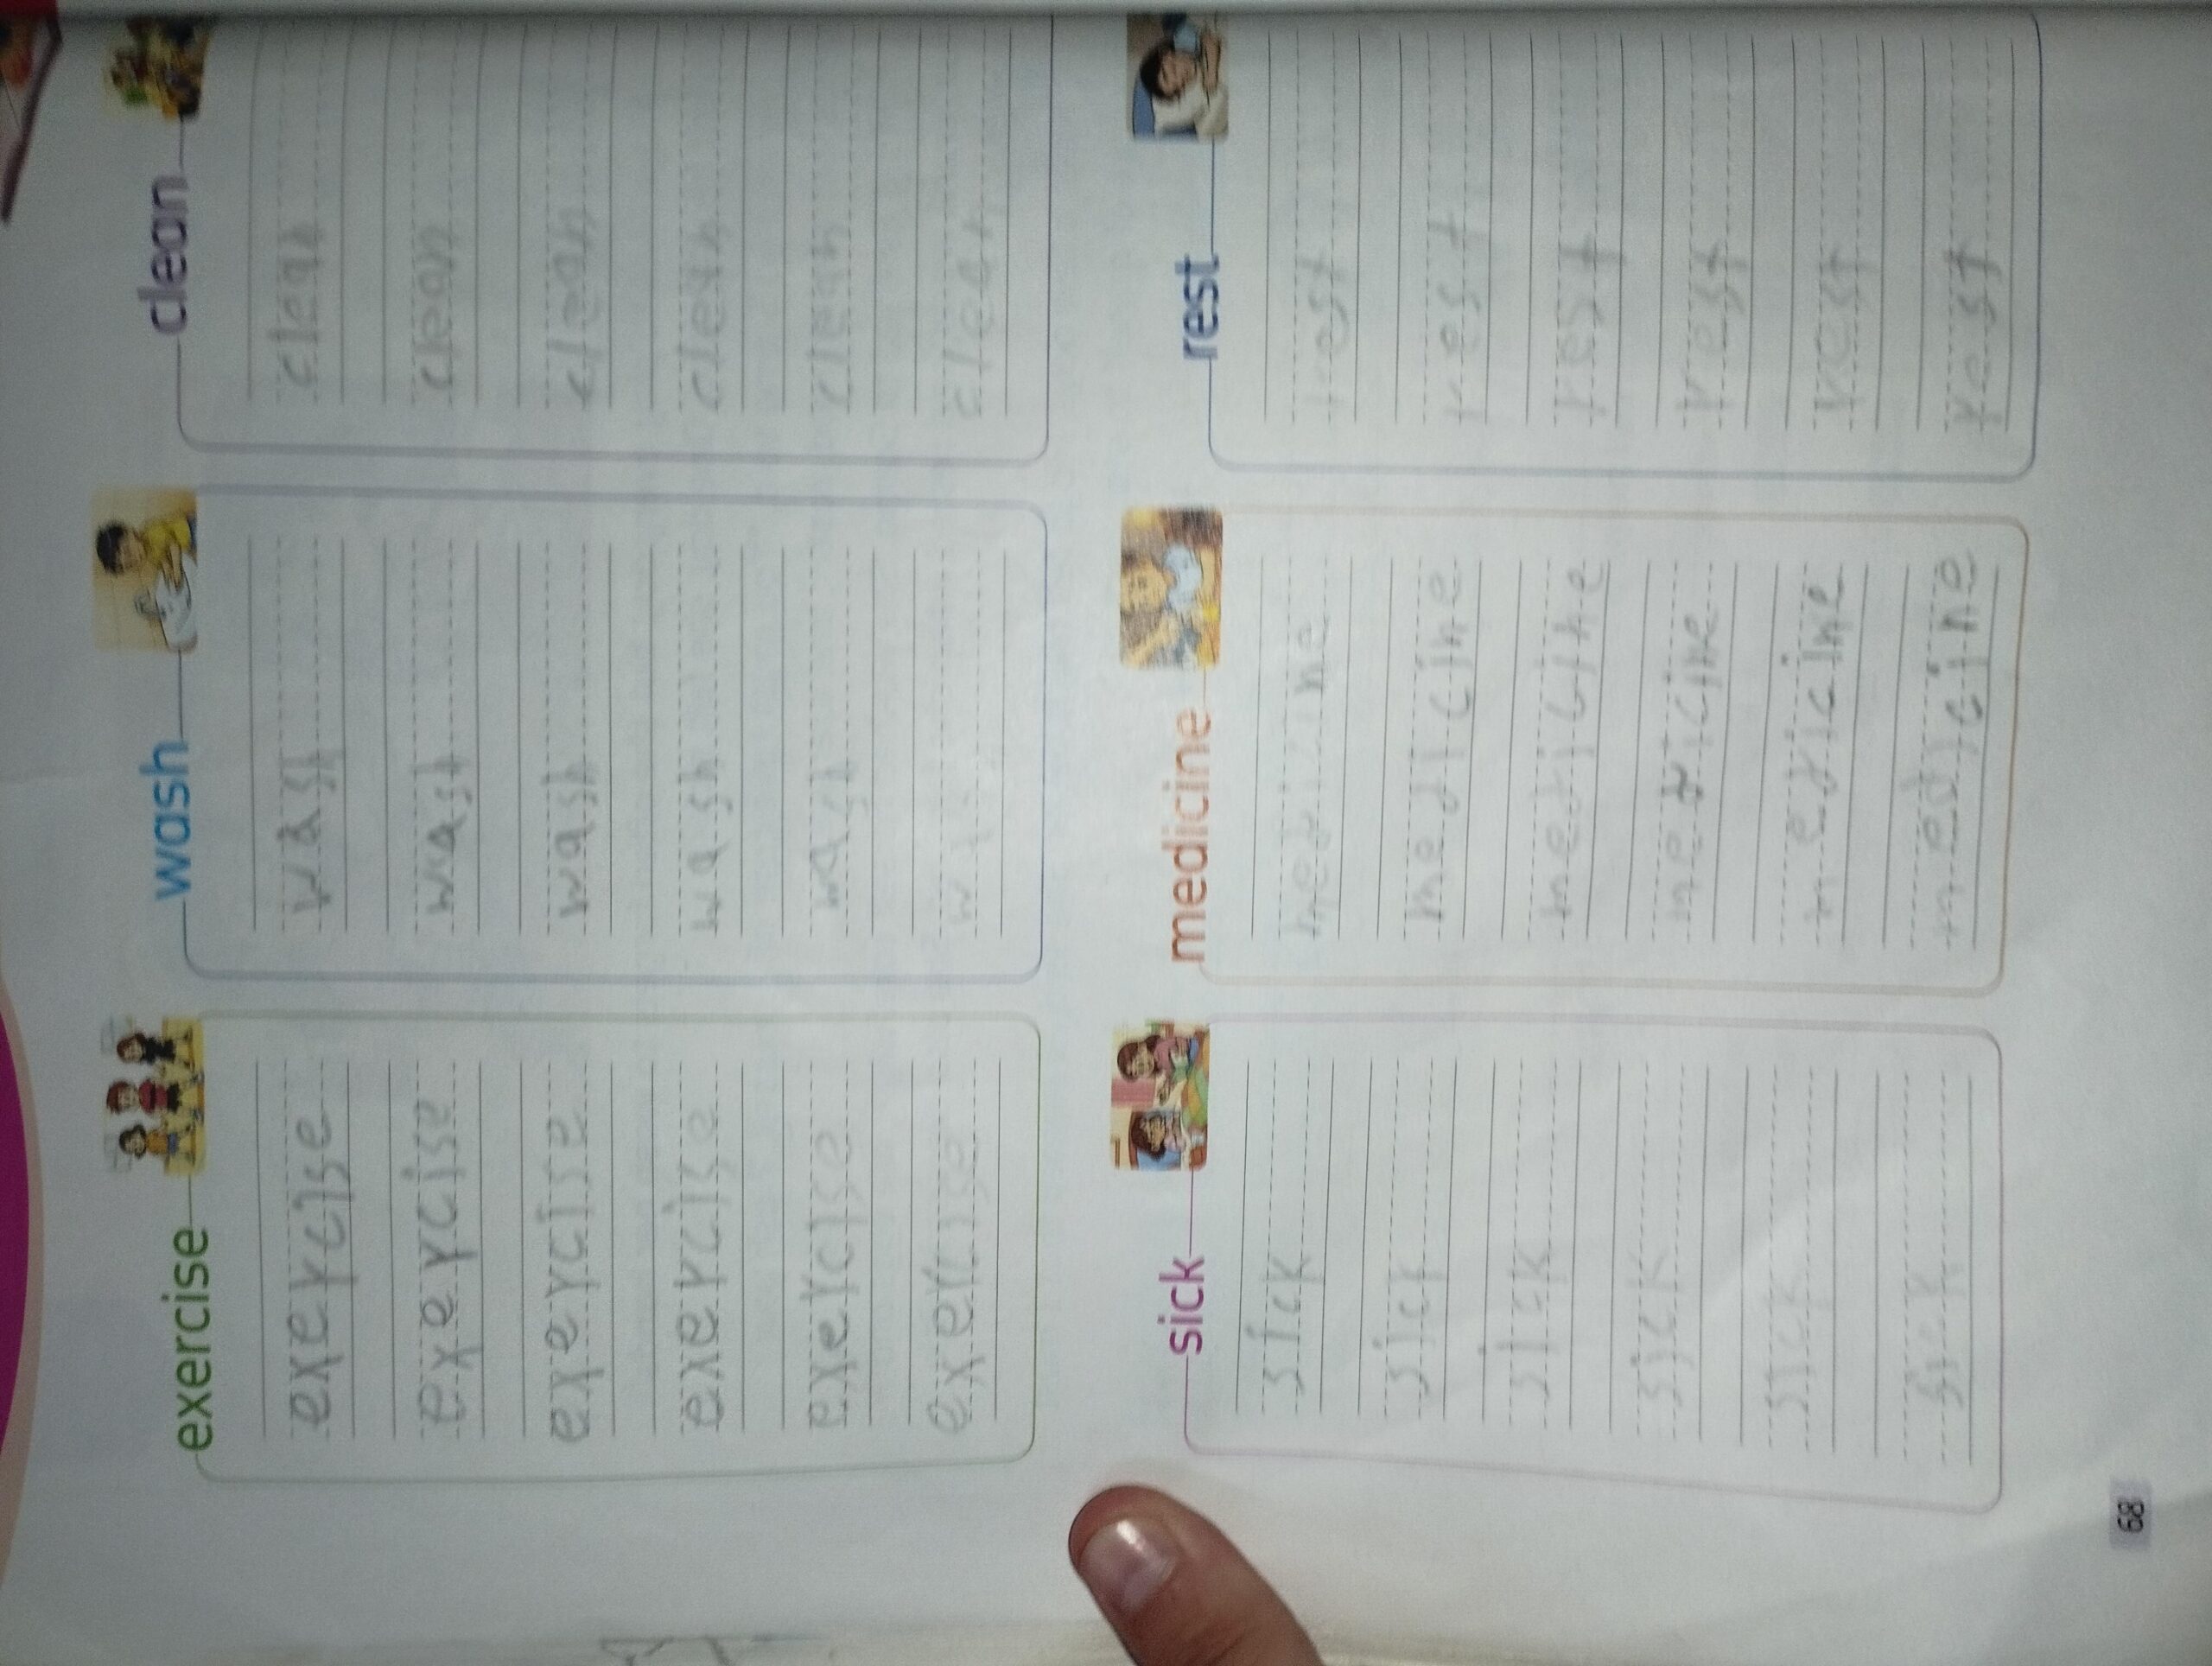 exercise
exercise
exercise
exercise
exercise
exercise
exercise
wash
wash
wash
wash
wash
wash
clean
clean
clean
clean
clean
clean
clean
sick
sick
sick
sick
sick
sick
sick
medicine
medicine
medicine
medicine
medicine
medicine
rest
rest
rest
rest
rest
rest
rest
68